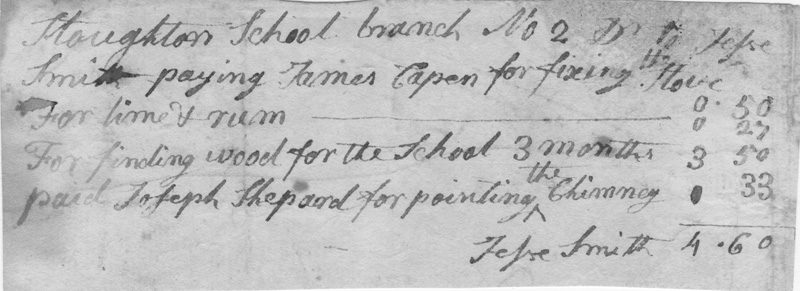 Stoughton School branch No 2 Dr to Jesse
Smith paying James Capen for fixing the Stove 0. 50
For lime & rum 0 27
For finding wood for the School 3 months 3 50
paid Joseph Shepard for pointing the Chimney 0 33
Jesse Smith 4.60